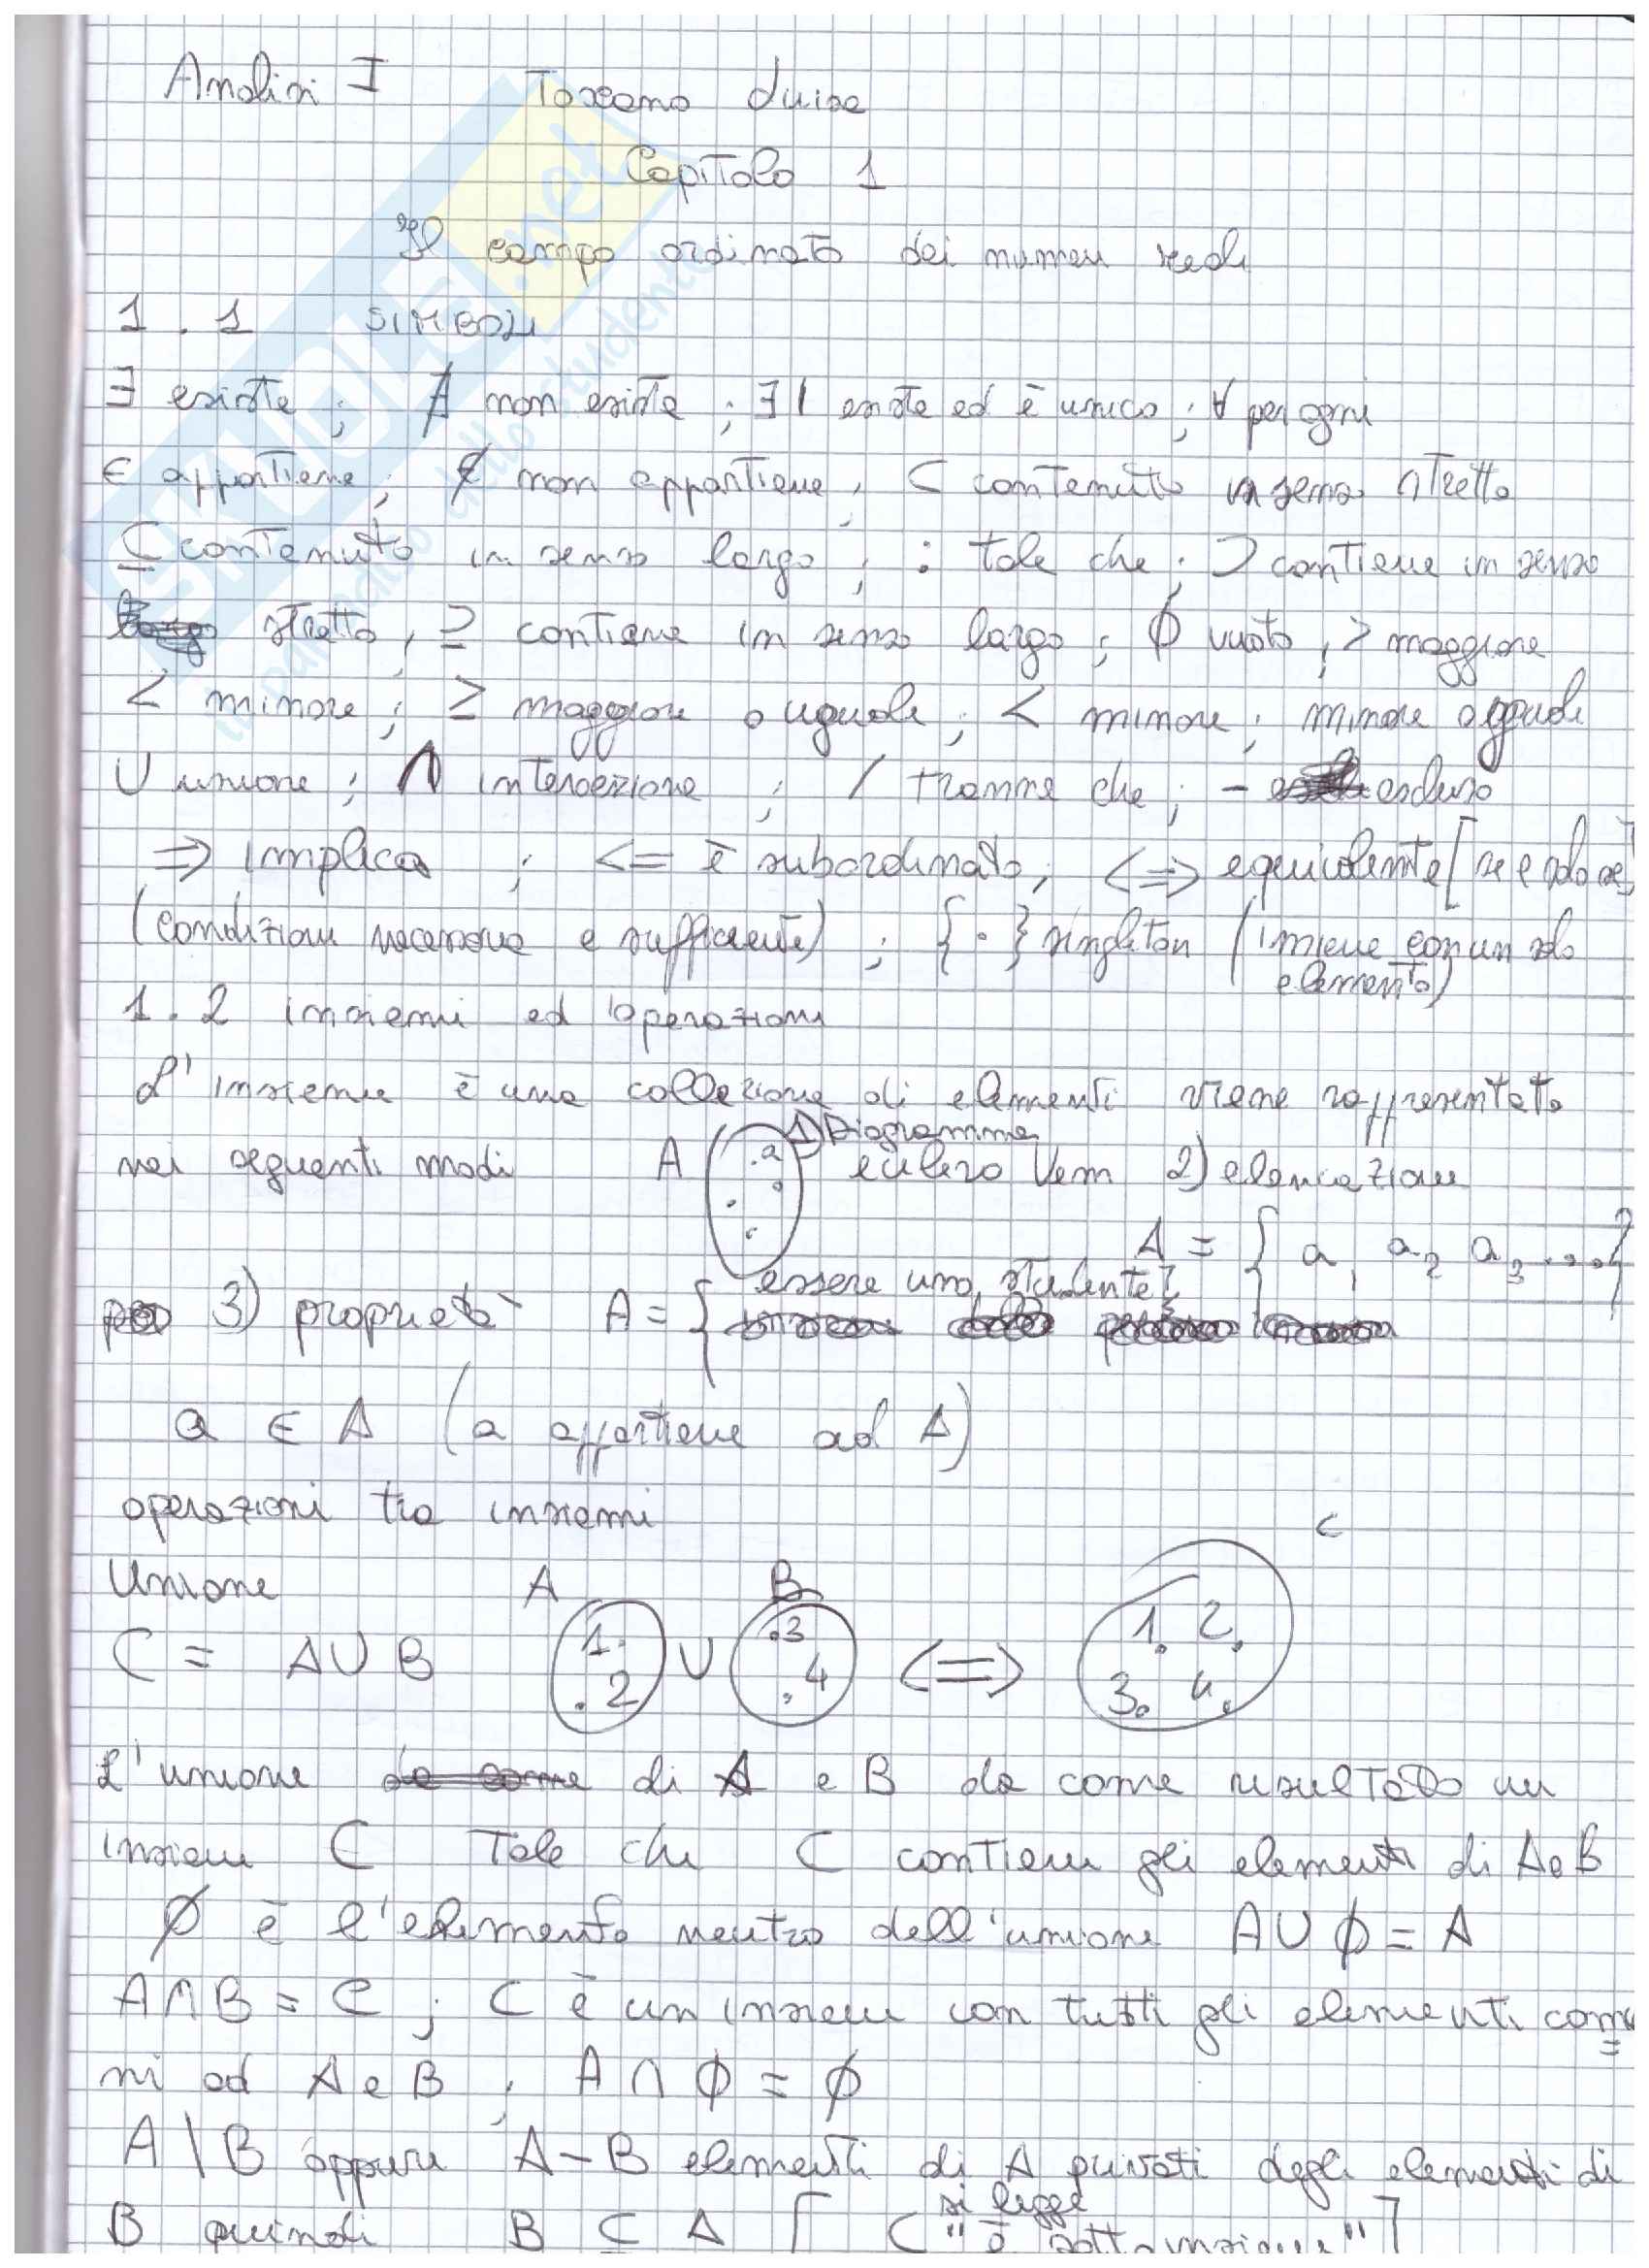 Analisi I Toscano Luisa
Capitolo 1
Il campo ordinato dei numeri reali
1.1 SIMBOLI
∃ esiste ; ∄ non esiste ; ∃| esiste ed è unico ; ∀ per ogni
∈ appartiene ; ∉ non appartiene ; ⊂ contenuto in senso stretto
⊆ contenuto in senso largo ; : tale che ; ⊃ contiene in senso
stretto , ⊇ contiene in senso largo ; ∅ vuoto ; > maggiore
< minore ; ≥ maggiore o uguale ; < minore ; minore o uguale
∪ unione ; ∩ intersezione ; / tranne che ; - escluso
=> implica ; <= è subordinato ; <=> equivalente [se e solo se]
(condizione necessaria e sufficiente) ; { . } singleton (insieme con un solo
elemento)
1.2 insiemi ed operazioni
L' insieme è una collezione di elementi viene rappresentato
nei seguenti modi A .a 1) Diagramma eulero Venn 2) elencazione
A = { a1 a2 a3 .... }
3) proprietà A = { essere uno studente }
a ∈ A (a appartiene ad A)
operazioni tra insiemi
Unione A B C
C = A ∪ B 1. .2 ∪ .3 .4 <=> 1. 2. 3. 4.
L' unione di A e B da come risultato un
insieme C Tale che C contiene gli elementi di A e B
∅ è l'elemento neutro dell'unione A ∪ ∅ = A
A ∩ B = C ; C è un insieme con tutti gli elementi comu
ni ad A e B ; A ∩ ∅ = ∅
A \ B oppure A - B elementi di A privati degli elementi di
B quindi B ⊆ A [ ⊂ si legge "è sottoinsieme" ]
SKUOLA.net
impariamo dallo studente